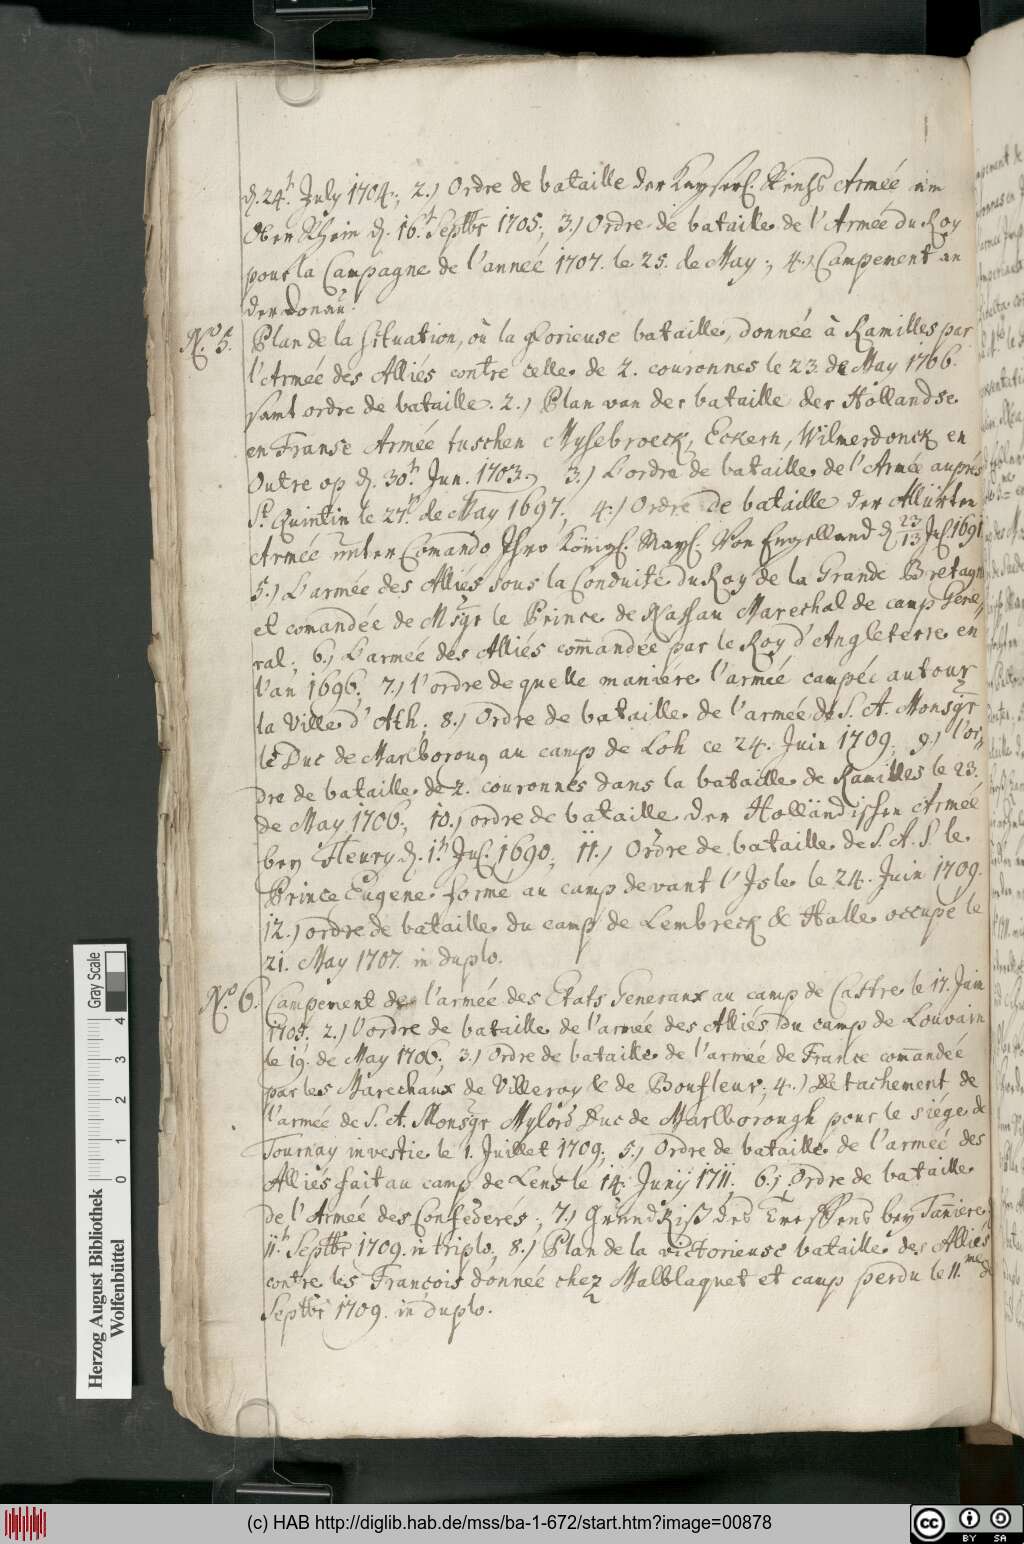 d. 24.t July 1704., 2.) Ordre de bataille der Kayserl. Reichs Armée am
Ober Rhein d. 16.t Septbr 1705., 3.) Ordre de bataille de l'Armée du Roy
pour la Campagne de l'année 1707. le 25. de May ., 4.) Campement an
der Donau.
No. 5. Plan de la situation, où la glorieuse bataille, donnée à Ramilles par
l'Armée des Alliés contre celle de 2. couronnes le 23. de May 1706.
samt ordre de bataille. 2.) Plan van der bataille der Hollandse
en Franse Armée tuschen Mysebroeck, Eckern, Wilmerdonck en
Outre op d. 30.n Jun. 1703., 3.) L'ordre de bataille de l'Armée auprés
St. Quintin le 27.n de May 1697., 4.) Ordre de bataille der Alliirten
Armée unter Comando Ihro Königl. May. Von Engelland d. 23/13 Jul. 1691
5.) L'armée des Alliés sous la Conduite du Roy de la Grande Bretagne
et comandée de Msgr le Prince de Nassau Marechal de camp Gene-
ral., 6.) L'armée des Alliés com̅andée par le Roy d'Angleterre en
l'an 1696., 7.) l'ordre de quelle maniére l'armée campée autour
la Ville d'Ath., 8.) Ordre de bataille de l'armée de S. A. Monsgr
le Duc de Marlboroug au camp de Loh ce 24. Juin 1709., 9.) l'or-
dre de bataille de 2. couronnes dans la bataille de Ramilles le 23.
de May 1706., 10.) ordre de bataille der Holländischen Armée
bey Fleury d. 1.n Jul. 1690., 11.) Ordre de bataille de S. A. S. le
Prince Eugene formé au camp devant l'Isle le 24. Juin 1709.
12.) ordre de bataille du camp de Lembreck & Halle occupé le
21. May 1707. in duplo.
No. 6. Campement de l'armée des Etats Generaux au camp de Castre le 17. Juin
1705. 2.) l'ordre de bataille de l'armée des Alliés du camp de Louvain
le 19. de May 1706., 3.) Ordre de bataille de l'armée de France com̅andée
par les Marechaux de Villeroy & de Boufleur., 4.) Detachement de
l'armée de S. A. Monsgr Mylord Duc de Marlborough pour le siége de
Tournay investie le 1. Juillet 1709., 5.) Ordre de bataille de l'armée des
Alliés fait au camp de Lens le 14. Junij 1711. 6.) Ordre de bataille
de l'Armée des Confederes., 7.) GrundRiß des Treffens bey Tan̅iere d
11.n Septbr 1709. in triplo., 8.) Plan de la victorieuse bataille des Alliés
contre les François donnée chez Malblaquet et camp perdu le 11.me de
Septbr 1709. in duplo.
Gray Scale
0 1 2 3 4
Herzog August Bibliothek
Wolfenbüttel
(c) HAB http://diglib.hab.de/mss/ba-1-672/start.htm?image=00878
cc BY SA